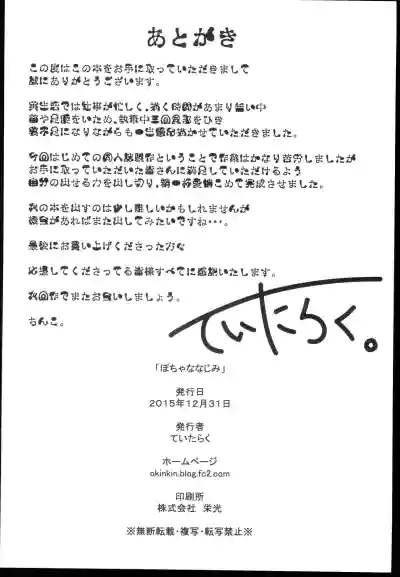 あとがき
この度はこの本をお手に取っていただきまして
誠にありがとうございます。
腰や足腰をいため、執筆中三回風邪をひき
寝不足になりながらも一生懸命描かせていただきました。
今回はじめての個人誌既作ということで作業はかなり苦労しましたが
お手に取っていただいた皆さんに満足していただけるよう
自分の出せる力を出し切り、愛情こめて完成させました。
次の本を出すのは少し難しいかもしれませんが
機会があればまた出してみたいですね…。
最後にお買い上げくださった方々
応援してくださってる皆様すべてに感謝いたします。
次回作でまたお会いしましょう。
ちんこ。
ていたらく。
「ぽちゃななじみ」
発行日
2015年12月31日
発行者
ていたらく
ホームページ
okinkin.blog.fc2.com
印刷所
株式会社 栄光
※無断転載・複写・転写禁止※